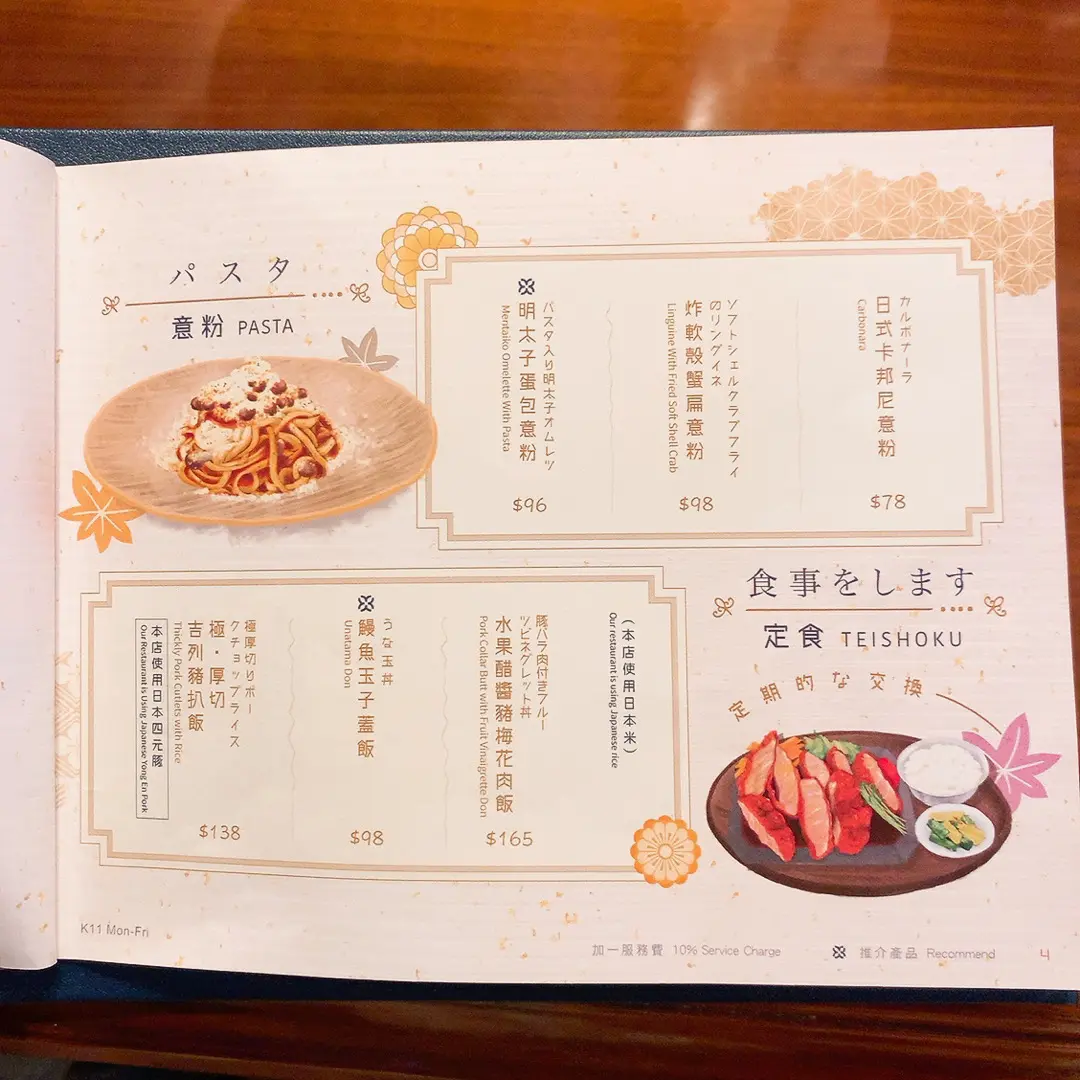 パスタ
意粉 PASTA
カルボナーラ
日式卡邦尼意粉
Carbonara
$78
ソフトシェルクラブフライ
のリングイネ
炸軟殼蟹扁意粉
Linguine With Fried Soft Shell Crab
$98
パスタ入り明太子オムレツ
明太子蛋包意粉
Mentaiko Omelette With Pasta
$96
食事をします
定食 TEISHOKU
定期的な交換
(本店使用日本米)
Our restaurant is using Japanese rice
豚バラ肉付きフルー
ツビネグレット丼
水果醋醬豬梅花肉飯
Pork Collar Butt with Fruit Vinaigrette Don
$165
うな玉丼
鰻魚玉子蓋飯
Unatama Don
$98
極厚切りポー
クチョップライス
極・厚切
吉列豬扒飯
Thickly Pork Cutlets with Rice
本店使用日本四元豚
Our Restaurant is Using Japanese Yong En Pork
$138
K11 Mon-Fri
加一服務費 10% Service Charge
推介產品 Recommend
4